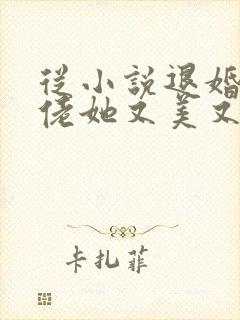 從小說退婚
佬她又美又
卡扎菲